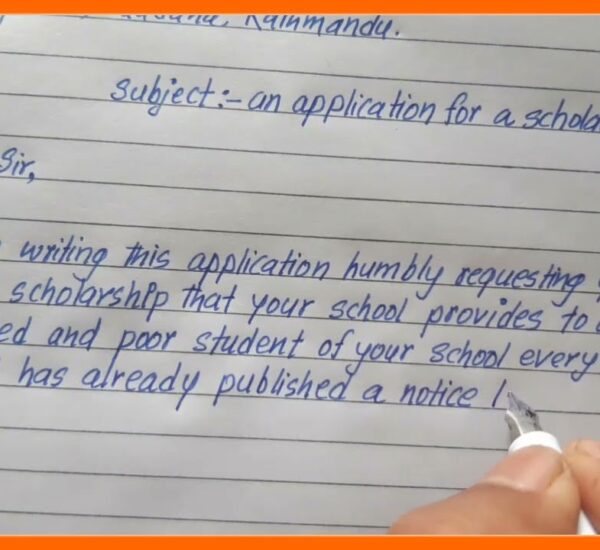 Kathmandu.
Subject:- an application for a
Sir,
writing this application humbly requesting
scholarship that your school provides to
and poor student of your school every
has already published a notice